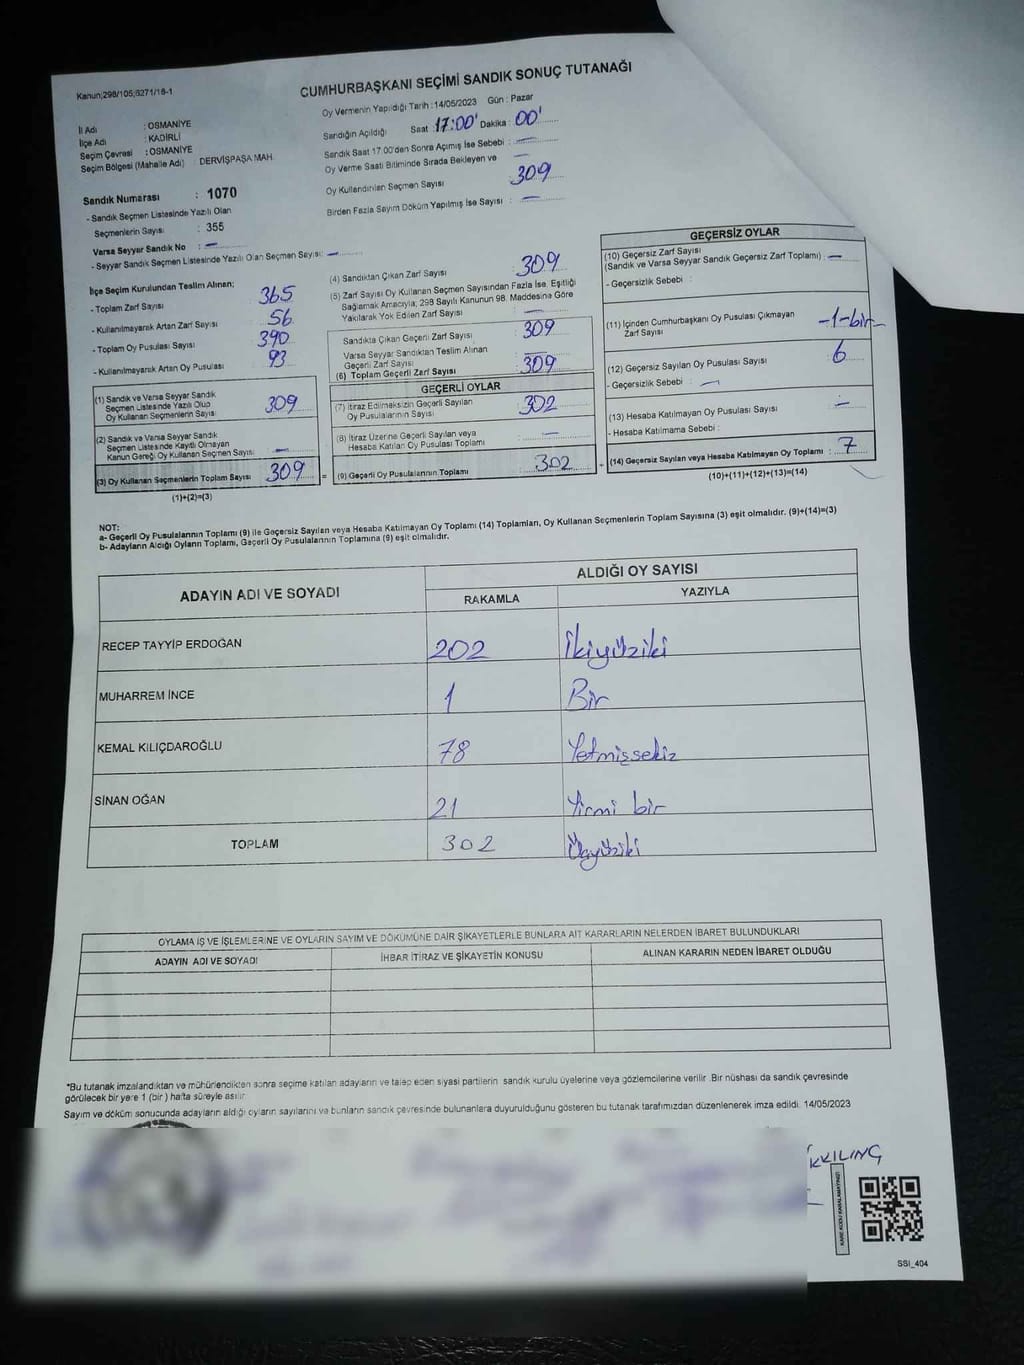 Kanun;298/105;6271/18-1
CUMHURBAŞKANI SEÇİMİ SANDIK SONUÇ TUTANAĞI
İl Adı : OSMANİYE
İlçe Adı : KADİRLİ
Seçim Çevresi : OSMANİYE
Seçim Bölgesi (Mahalle Adı) DERVİŞPAŞA MAH.
Sandık Numarası : 1070
- Sandık Seçmen Listesinde Yazılı Olan
Seçmenlerin Sayısı : 355
Varsa Seyyar Sandık No : —
- Seyyar Sandık Seçmen Listesinde Yazılı Olan Seçmen Sayısı: —
Oy Vermenin Yapıldığı Tarih :14/05/2023 Gün : Pazar
Sandığın Açıldığı Saat 17:00' Dakika : 00'
Sandık Saat 17.00'den Sonra Açılmış İse Sebebi : —
Oy Verme Saati Bitiminde Sırada Bekleyen ve —
Oy Kullandırılan Seçmen Sayısı : 309
Birden Fazla Sayım Döküm Yapılmış İse Sayısı : —
İlçe Seçim Kurulundan Teslim Alınan;
- Toplam Zarf Sayısı : 365
- Kullanılmayarak Artan Zarf Sayısı : 56
- Toplam Oy Pusulası Sayısı : 390
- Kullanılmayarak Artan Oy Pusulası : 93
(1) Sandık ve Varsa Seyyar Sandık
Seçmen Listesinde Yazılı Olup
Oy Kullanan Seçmenlerin Sayısı : 309
(2) Sandık ve Varsa Seyyar Sandık
Seçmen Listesinde Kayıtlı Olmayan
Kanun Gereği Oy Kullanan Seçmen Sayısı : —
(3) Oy Kullanan Seçmenlerin Toplam Sayısı : 309 =
(1)+(2)=(3)
(4) Sandıktan Çıkan Zarf Sayısı : 309
(5) Zarf Sayısı Oy Kullanan Seçmen Sayısından Fazla İse, Eşitliği
Sağlamak Amacıyla; 298 Sayılı Kanunun 98. Maddesine Göre
Yakılarak Yok Edilen Zarf Sayısı : —
Sandıkta Çıkan Geçerli Zarf Sayısı : 309
Varsa Seyyar Sandıktan Teslim Alınan
Geçerli Zarf Sayısı : —
(6) Toplam Geçerli Zarf Sayısı : 309
GEÇERLİ OYLAR
(7) İtiraz Edilmeksizin Geçerli Sayılan
Oy Pusulalarının Sayısı : 302
(8) İtiraz Üzerine Geçerli Sayılan veya
Hesaba Katılan Oy Pusulası Toplamı : —
(9) Geçerli Oy Pusulalarının Toplamı : 302 +
GEÇERSİZ OYLAR
(10) Geçersiz Zarf Sayısı
(Sandık ve Varsa Seyyar Sandık Geçersiz Zarf Toplamı) : —
- Geçersizlik Sebebi :
(11) İçinden Cumhurbaşkanı Oy Pusulası Çıkmayan
Zarf Sayısı : -1-bir-
(12) Geçersiz Sayılan Oy Pusulası Sayısı : 6
- Geçersizlik Sebebi : —
(13) Hesaba Katılmayan Oy Pusulası Sayısı : —
- Hesaba Katılmama Sebebi :
(14) Geçersiz Sayılan veya Hesaba Katılmayan Oy Toplamı : 7
(10)+(11)+(12)+(13)=(14)
NOT:
a- Geçerli Oy Pusulalarının Toplamı (9) ile Geçersiz Sayılan veya Hesaba Katılmayan Oy Toplamı (14) Toplamları, Oy Kullanan Seçmenlerin Toplam Sayısına (3) eşit olmalıdır. (9)+(14)=(3)
b- Adayların Aldığı Oyların Toplamı, Geçerli Oy Pusulalarının Toplamına (9) eşit olmalıdır.
ADAYIN ADI VE SOYADI ALDIĞI OY SAYISI
RAKAMLA YAZIYLA
RECEP TAYYİP ERDOĞAN 202 İkiyüziki
MUHARREM İNCE 1 Bir
KEMAL KILIÇDAROĞLU 78 Yetmişsekiz
SİNAN OĞAN 21 Yirmi bir
TOPLAM 302 Üçyüziki
OYLAMA İŞ VE İŞLEMLERİNE VE OYLARIN SAYIM VE DÖKÜMÜNE DAİR ŞİKAYETLERLE BUNLARA AİT KARARLARIN NELERDEN İBARET BULUNDUKLARI
ADAYIN ADI VE SOYADI İHBAR İTİRAZ VE ŞİKAYETİN KONUSU ALINAN KARARIN NEDEN İBARET OLDUĞU
*Bu tutanak imzalandıktan ve mühürlendikten sonra seçime katılan adayların ve talep eden siyasi partilerin sandık kurulu üyelerine veya gözlemcilerine verilir .Bir nüshası da sandık çevresinde
görülecek bir yere 1 (bir ) hafta süreyle asılır.
Sayım ve döküm sonucunda adayların aldığı oyların sayılarını ve bunların sandık çevresinde bulunanlara duyurulduğunu gösteren bu tutanak tarafımızdan düzenlenerek imza edildi. 14/05/2023
KARE KODU KARALAMAYINIZ!
SSİ_404